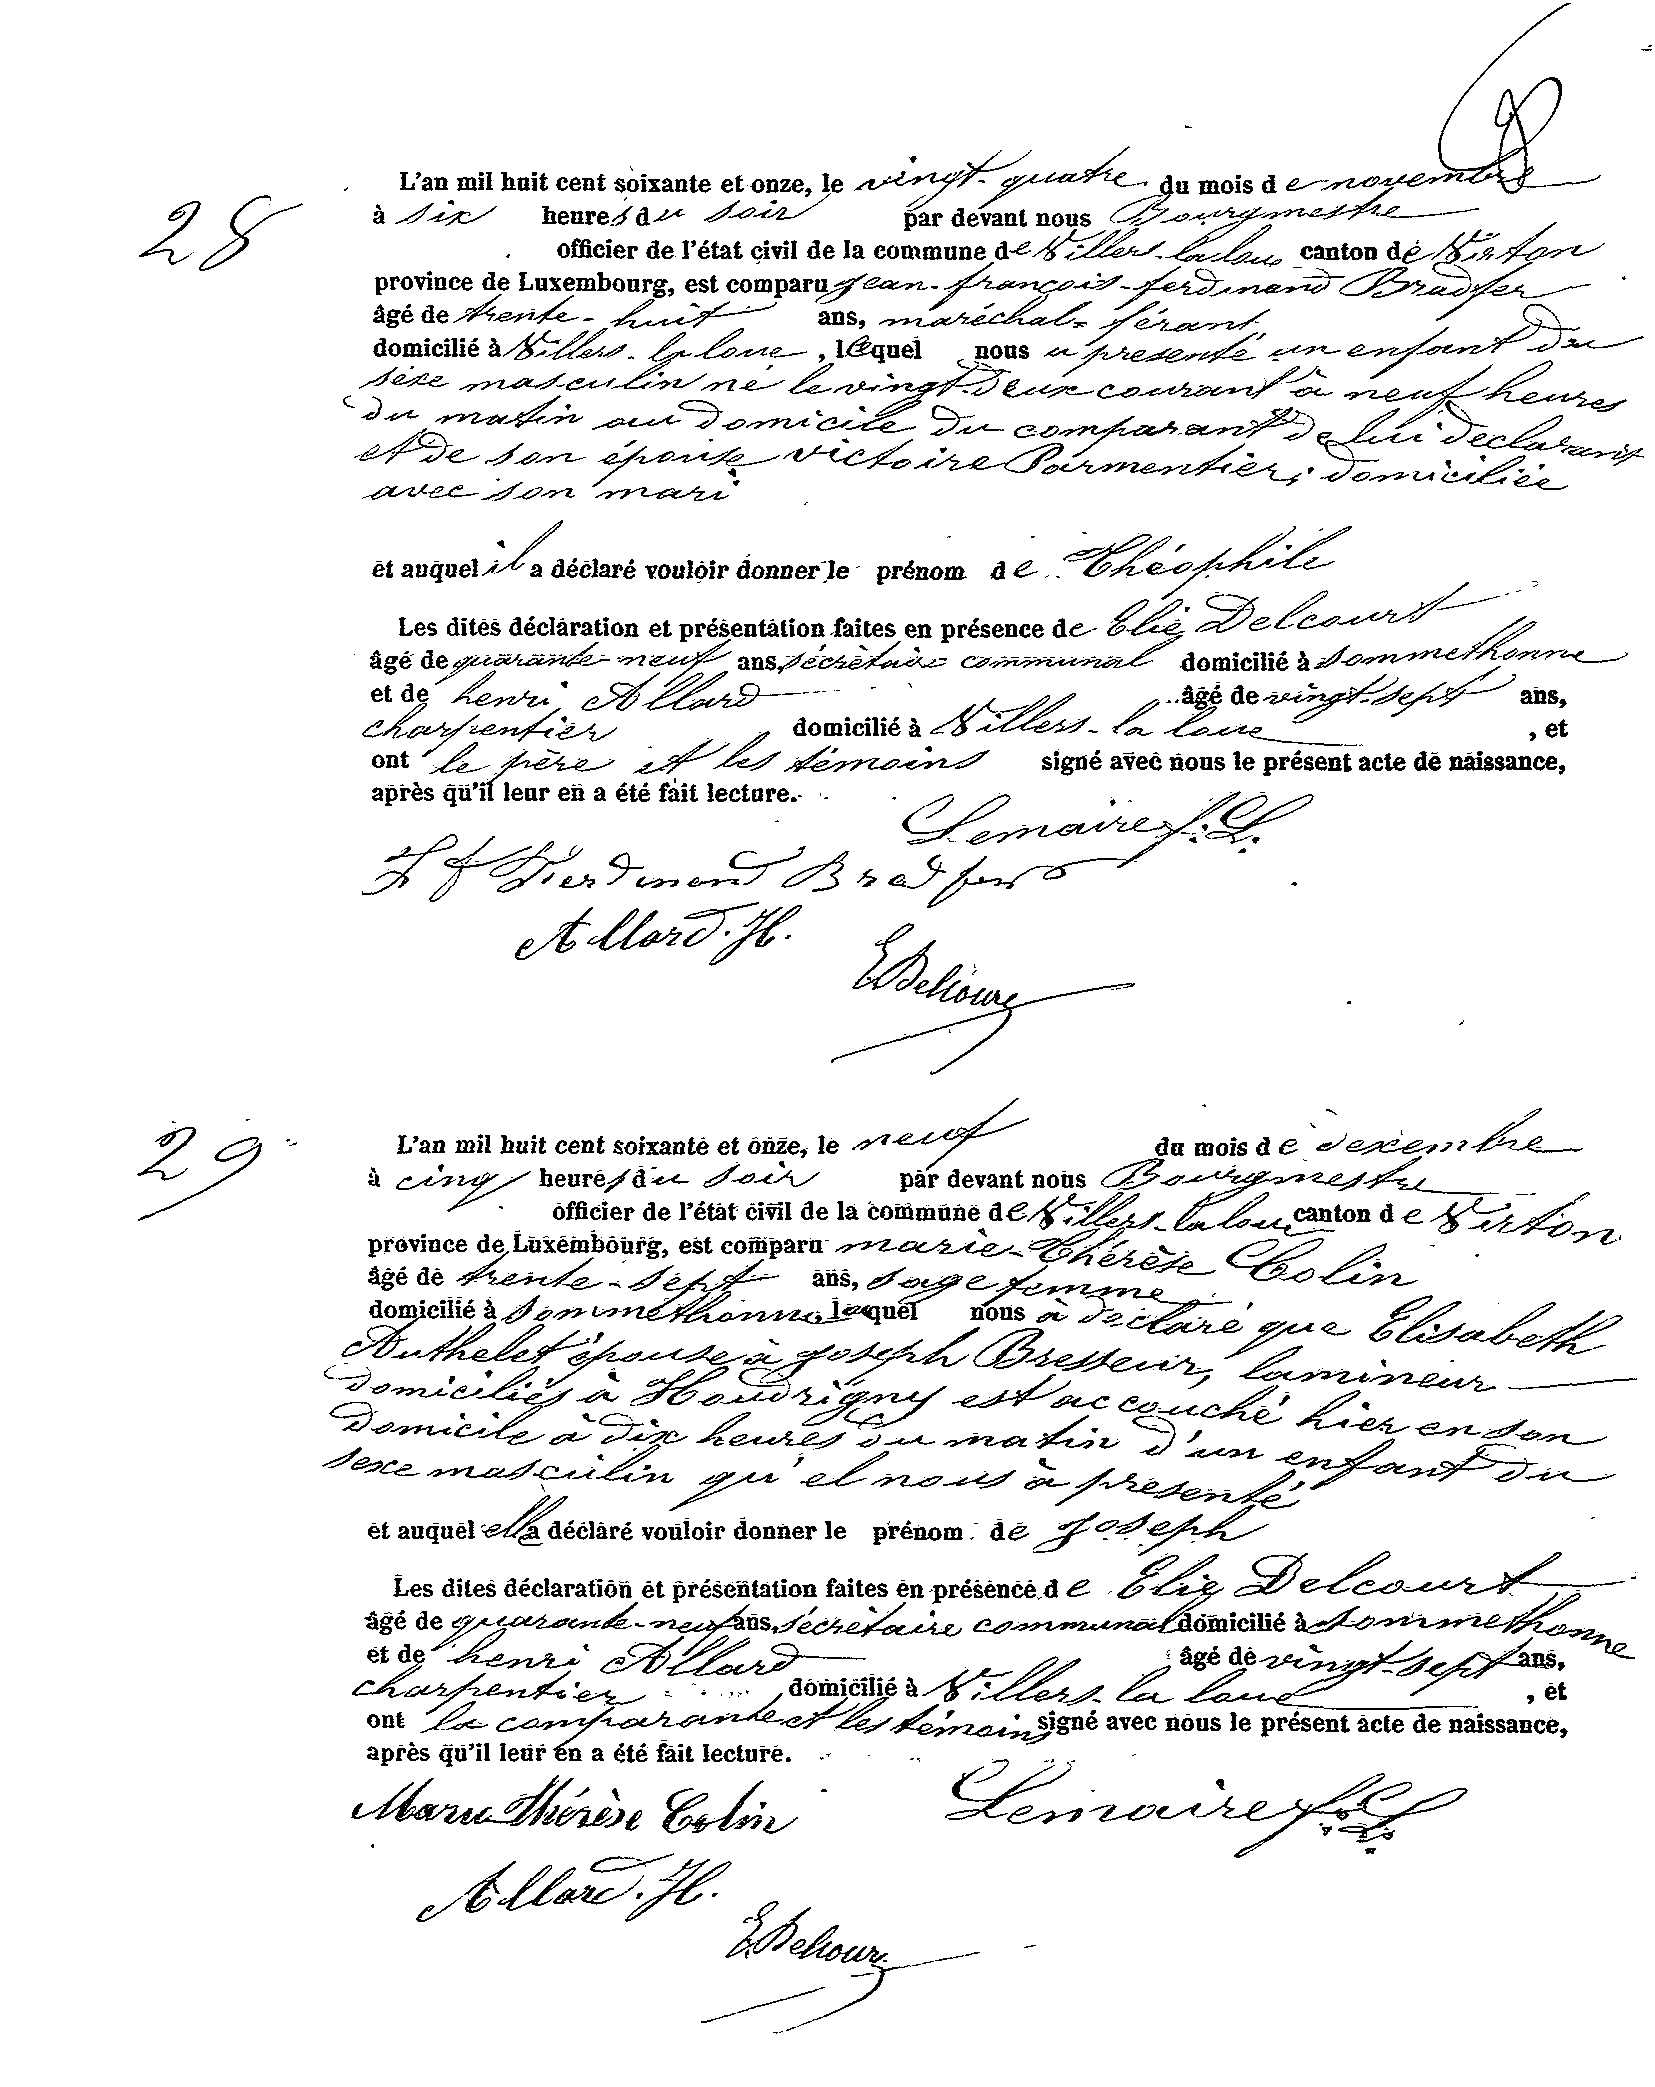 28
L'an mil huit cent soixante et onze, le vingt-quatre du mois de novembre
à six heures du soir par devant nous Bourgmestre
officier de l'état civil de la commune de Villers-la loue canton de Virton
province de Luxembourg, est comparu jean-françois-ferdinand Bradfer
âgé de trente-huit ans, maréchal-férant
domicilié à Villers-la loue, lequel nous a presenté un enfant du
sèxe masculin né le vingt-deux courant à neuf heures
du matin au domicile du comparant de lui declarant
et de son épouse victoire Parmentier; domiciliée
avec son mari
et auquel il a déclaré vouloir donner le prénom de Théophile
Les dites déclaration et présentation faites en présence de Elie Delcourt
âgé de quarante-neuf ans, sécrètaire communal domicilié à Sommethonne
et de henri Allard âgé de vingt-sept ans,
charpentier domicilié à Villers-la loue, et
ont le père et les témoins signé avec nous le présent acte de naissance,
après qu'il leur en a été fait lecture.
Lemaire f. L.
J f Ferdinand Bradfer
Allard. H.
E Delcourt
29
L'an mil huit cent soixante et onze, le neuf du mois de dexembre
à cinq heures du soir par devant nous Bourgmestre
officier de l'état civil de la commune de Villers-la loue canton de Virton
province de Luxembourg, est comparu marie-Thérèse Colin
âgé de trente-sept ans, sage femme
domicilié à Sommethonne, laquel nous à declaré que Elisabeth
Authelet épouse à joseph Bresseur, lamineur
domiciliés à Houdrigny est accouché hier en son
domicile à dix heures du matin d'un enfant du
sexe masculin qu'el nous à presenté
et auquel elle a déclaré vouloir donner le prénom de joseph
Les dites déclaration et présentation faites en présence de Elie Delcourt
âgé de quarante-neuf ans, sécrètaire communal domicilié à Sommethonne
et de henri Allard âgé de vingt-sept ans,
charpentier domicilié à Villers-la loue, et
ont la comparante et les témoins signé avec nous le présent acte de naissance,
après qu'il leur en a été fait lecture.
Marie Thérèse Colin Lemaire f. L.
Allard. H.
E Delcourt